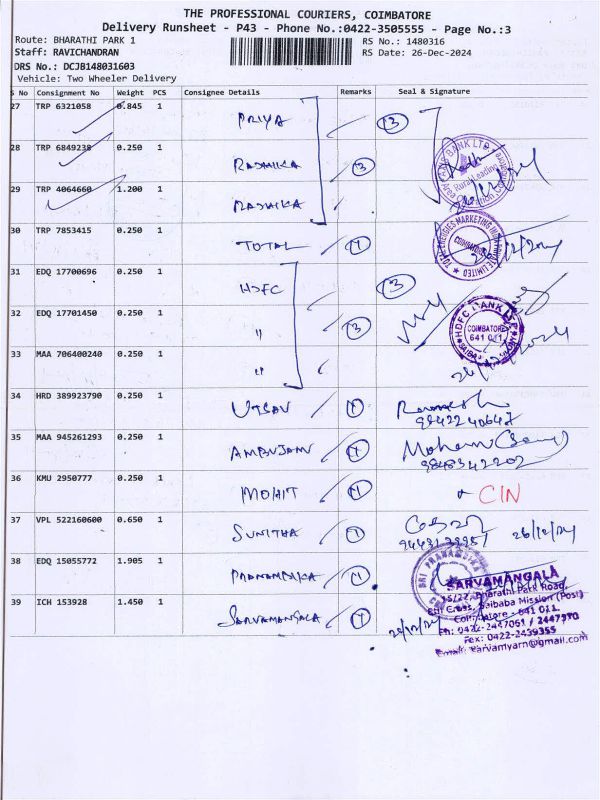 THE PROFESSIONAL COURIERS, COIMBATORE
Delivery Runsheet - P43 - Phone No.:0422-3505555 - Page No.:3
Route: BHARATHI PARK 1 RS No.: 1480316
Staff: RAVICHANDRAN RS Date: 26-Dec-2024
DRS No.: DCJB148031603
Vehicle: Two Wheeler Delivery
S No Consignment No Weight PCS Consignee Details Remarks Seal & Signature
27 TRP 6321058 0.845 1 PRIYA 3
28 TRP 6849238 0.250 1 RADHIKA 3
29 TRP 4064660 1.200 1 RADHIKA
BANK LTD
Rural Leading
30 TRP 7853415 0.250 1 TOTAL 1
ENERGIES MARKETING INDIA PRIVATE LIMITED
COIMBATORE
31 EDQ 17700696 0.250 1 HDFC 3
32 EDQ 17701450 0.250 1 " 3
33 MAA 706400240 0.250 1 "
HDFC BANK LTD
COIMBATORE
641 011
34 HRD 389923790 0.250 1 UTSAV 1 Ramesh
9842240647
35 MAA 945261293 0.250 1 AMBUJAM 1 Mohan
9848342202
36 KMU 2950777 0.250 1 MOHIT 1 CIN
37 VPL 522160600 0.650 1 SUNITHA 1 26/12/24
38 EDQ 15055772 1.905 1 1
SRI
39 ICH 153928 1.450 1 SARVAMANGALA 1
SARVAMANGALA
15/22, Bharathi Park Road,
8th Cross, Saibaba Mission (Post)
Coimbatore - 641 011.
Ph: 0422-2447061 / 2447970
Fex: 0422-2439355
Email: sarvamyarn@gmail.com